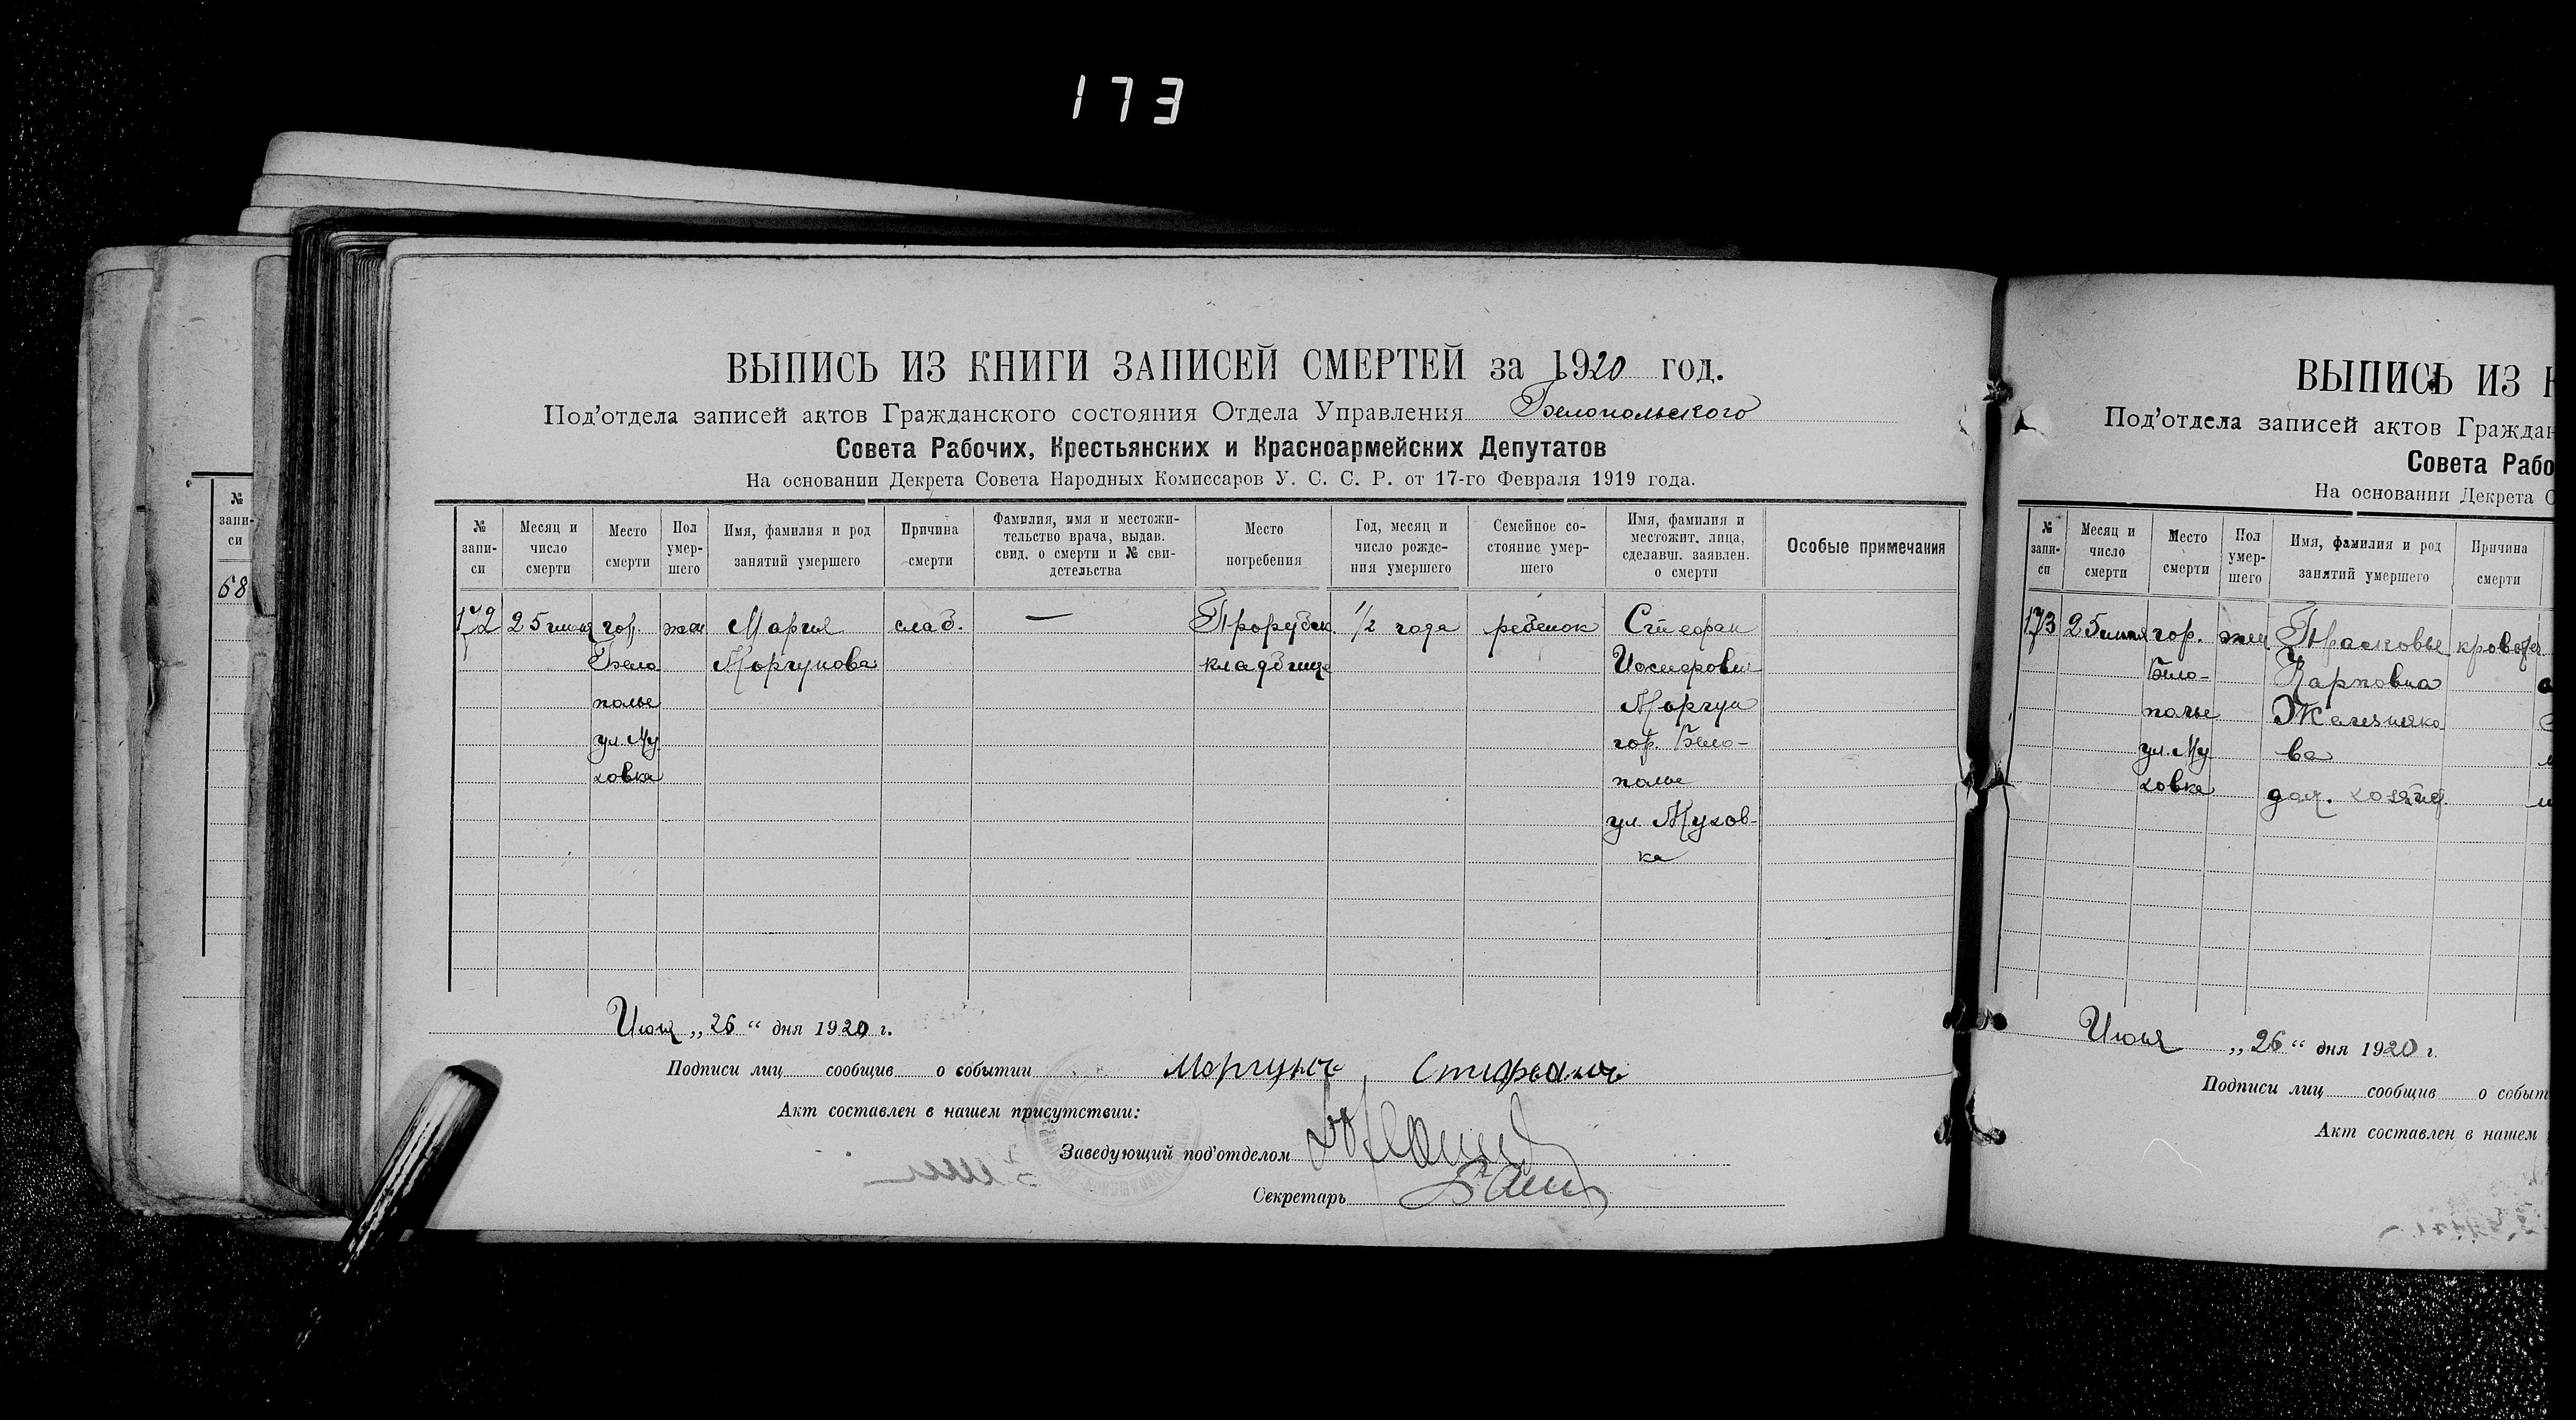 173
№
запи-
си
68
ВЫПИСЬ ИЗ КНИГИ ЗАПИСЕЙ СМЕРТЕЙ за 1920 год.
Под'отдела записей актов Гражданского состояния Отдела Управления Белопольского
Совета Рабочих, Крестьянских и Красноармейских Депутатов
На основании Декрета Совета Народных Комиссаров У. С. С. Р. от 17-го Февраля 1919 года.
№
запи-
си
Месяц и
число
смерти
Место
смерти
Пол
умер-
шего
Имя, фамилия и род
занятий умершего
Причина
смерти
Фамилия, имя и местожи-
тельство врача, выдав.
свид. о смерти и № сви-
детельства
Место
погребения
Год, месяц и
число рожде-
ния умершего
Семейное со-
стояние умер-
шего
Имя, фамилия и
местожит. лица,
сделавш. заявлен.
о смерти
Особые примечания
172
25 июня
гор.
Бело
полье
ул. Му
ховка
жен
Мария
Моргунова
слаб.
—
Прорубск.
кладбище
1/2 года
ребенок
Стефан
Иосифович
Моргун
гор. Бело-
полье
ул. Мухов-
ка
Июня „26“ дня 1920 г.
Подписи лиц сообщив о событии Моргунъ, Стифанъ
Акт составлен в нашем присутствии:
Заведующий под'отделом
Секретарь
ВЫПИСЬ ИЗ К
Под'отдела записей актов Граждан
Совета Рабо
На основании Декрета С
№
запи-
си
Месяц и
число
смерти
Место
смерти
Пол
умер-
шего
Имя, фамилия и род
занятий умершего
Причина
смерти
173
25 июня
гор.
Бело-
полье
ул. Му
ховка
жен
Прасковья
Карповна
Железняко
ва
дом. хозяйка
Июня „26“ дня 1920 г.
Подписи лиц сообщив о событ
Акт составлен в нашем